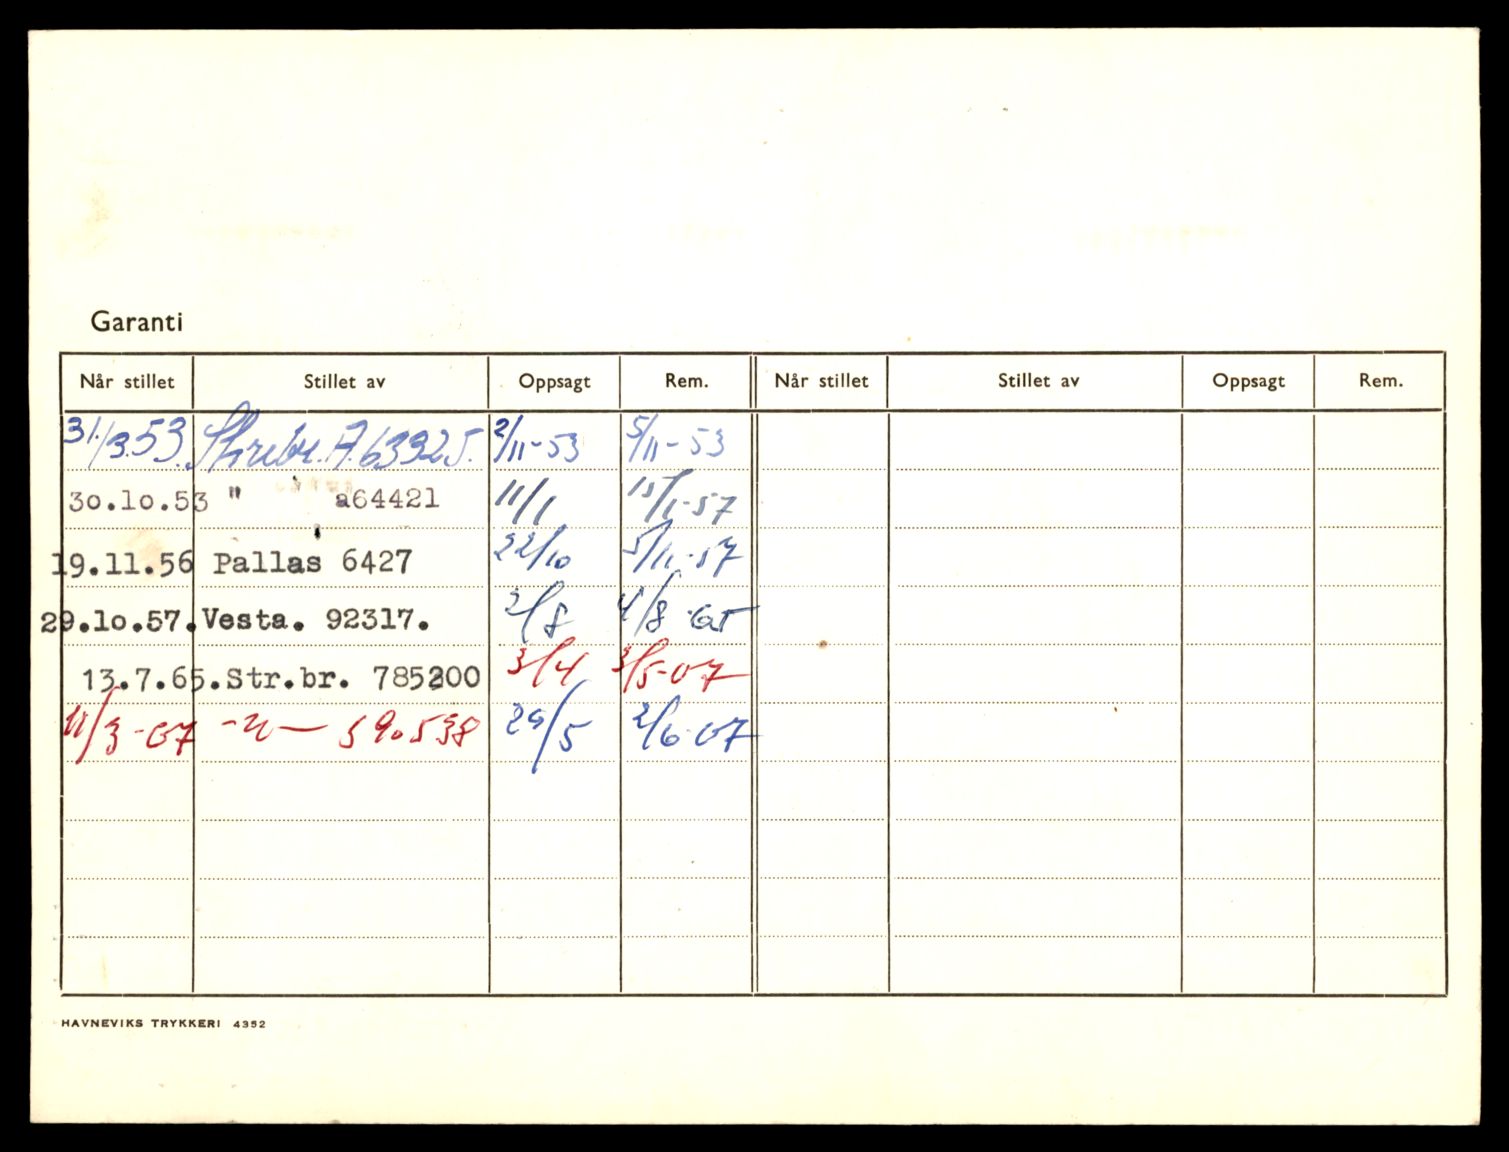 Garanti
Når stillet Stillet av Oppsagt Rem. Når stillet Stillet av Oppsagt Rem.
31./3.53. A.63325. 2/11-53 5/11-53
30.10.53 " a64421 11/1 15/1-57
19.11.56 Pallas 6427 22/10 5/11-57
29.10.57. Vesta. 92317. 2/8 4/8-65
13.7.65. Str.br. 785200 3/4 3/5-67
/3-67 -"- 590538 29/5 2/6-67
HAVNEVIKS TRYKKERI 4352